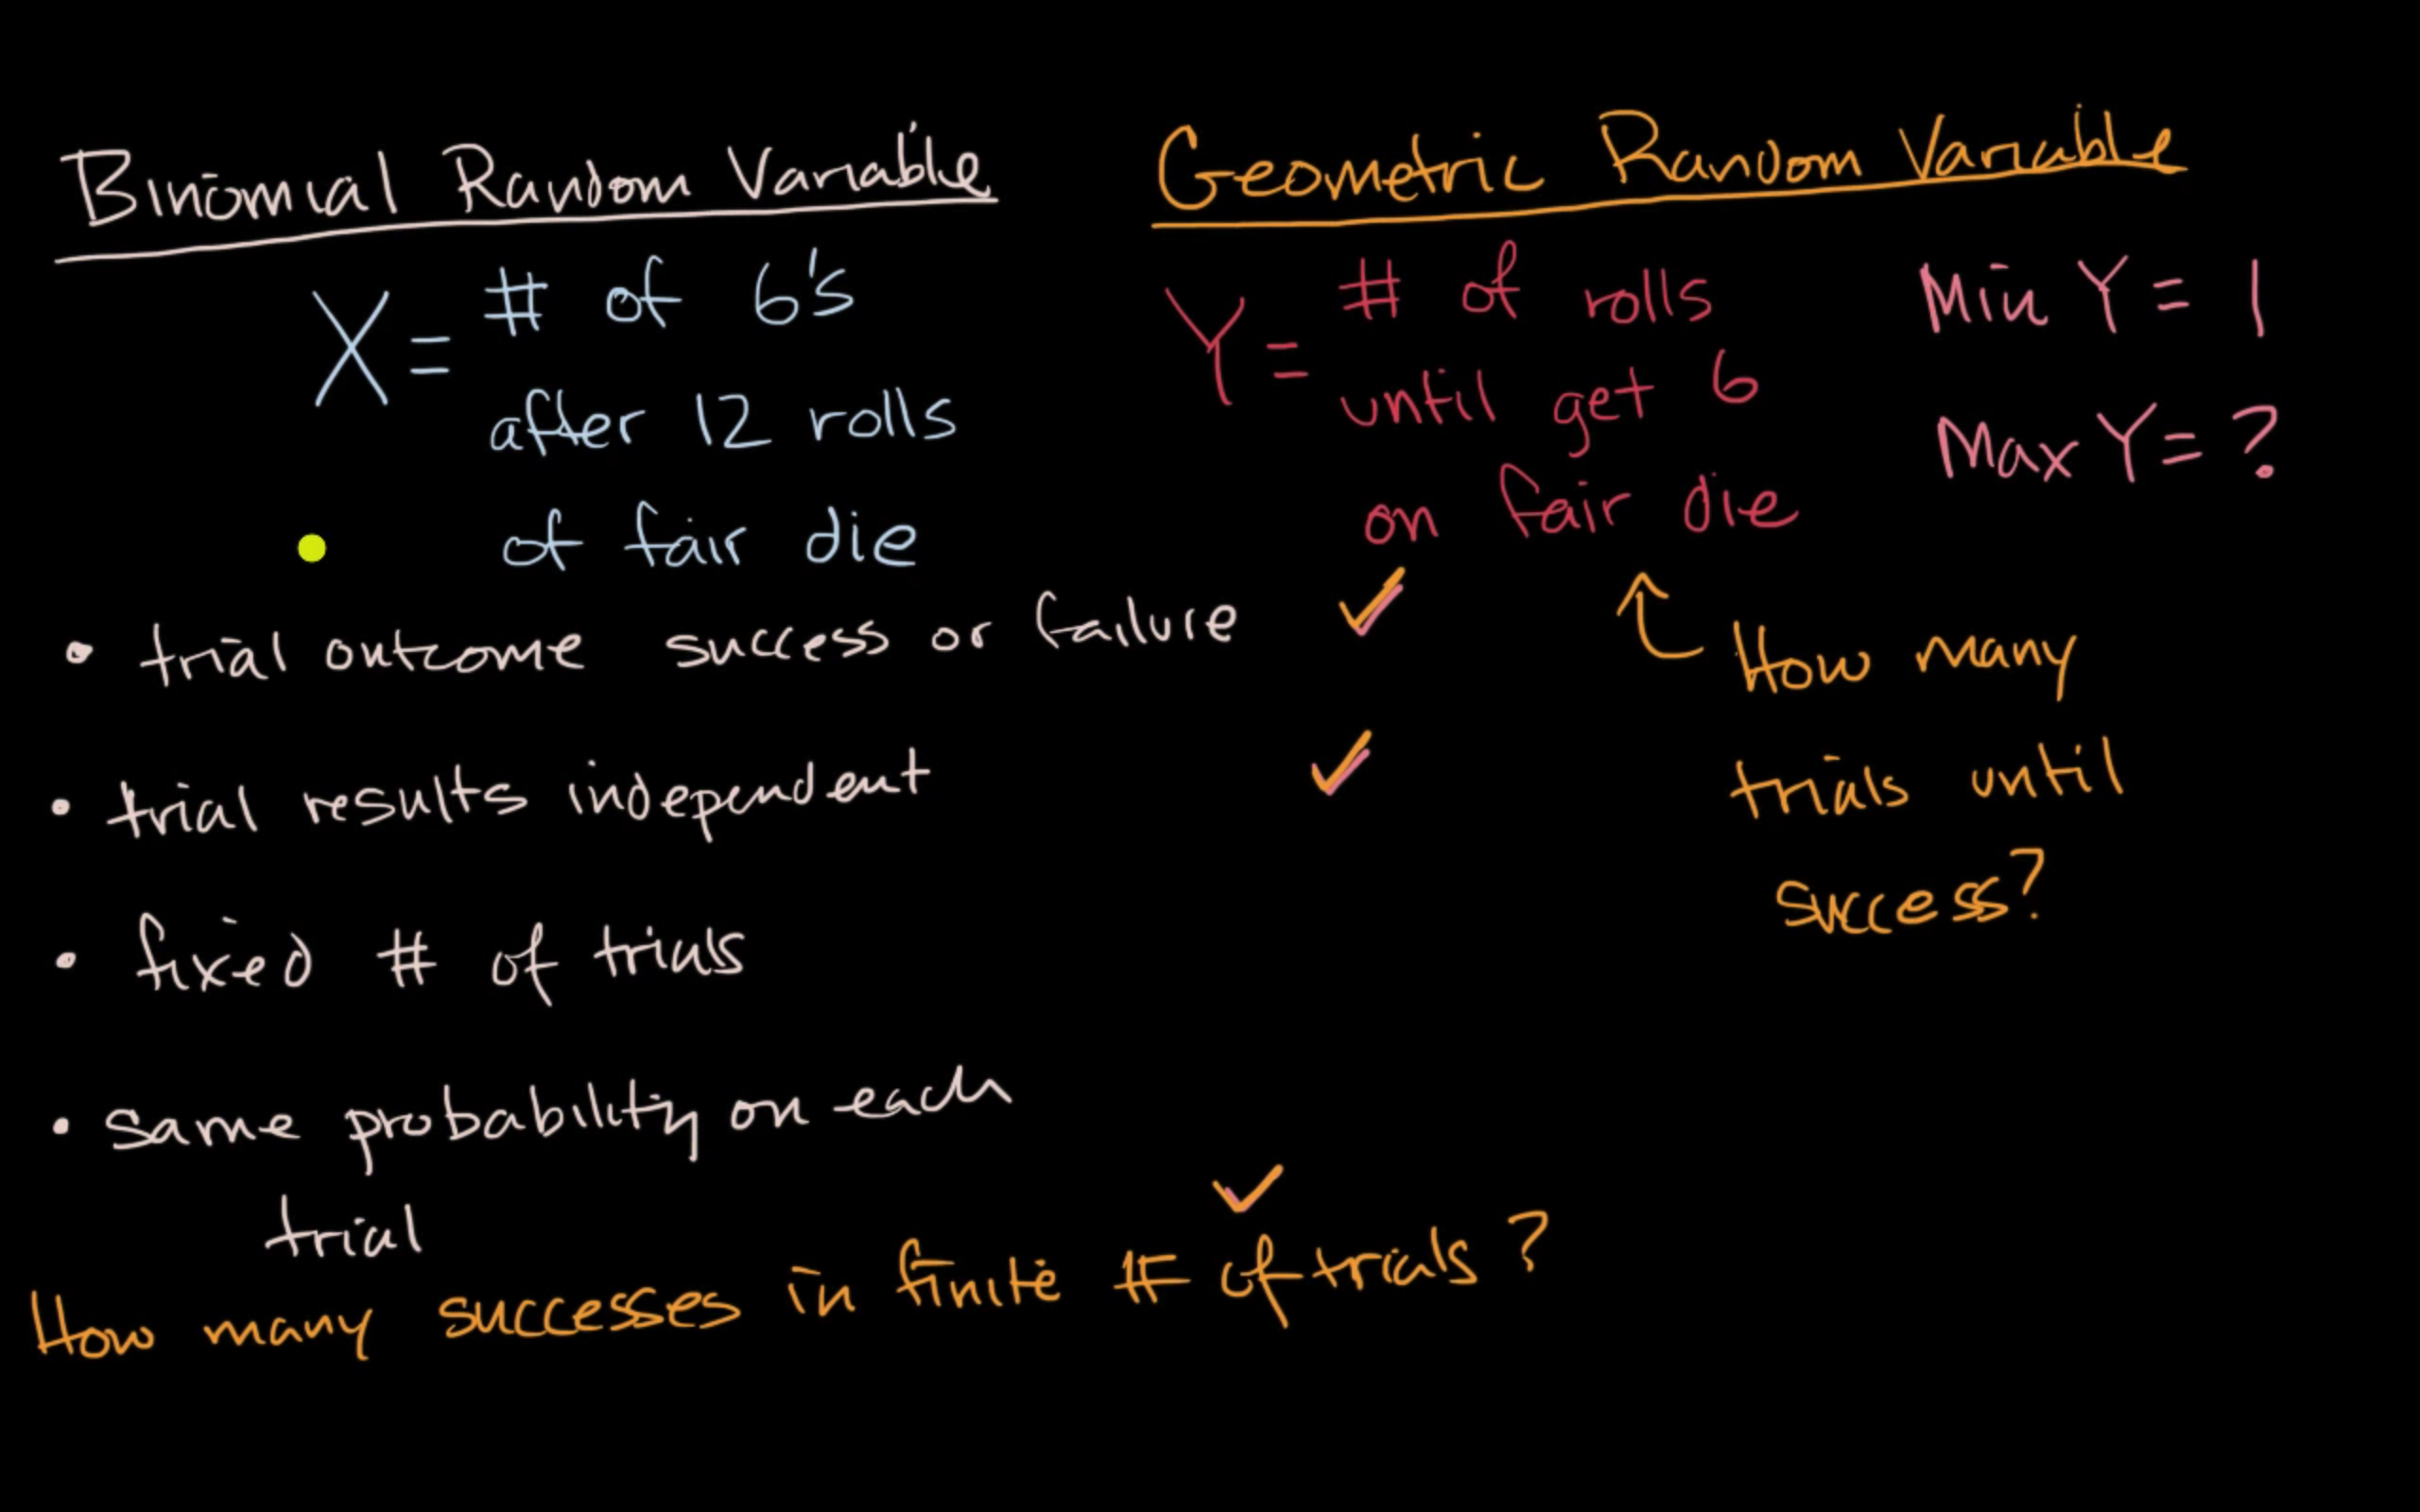 Binomial Random Variable
X = # of 6's
after 12 rolls
of fair die
• trial outcome success or failure ✓
• trial results independent ✓
• fixed # of trials
• same probability on each
trial ✓
How many successes in finite # of trials?
Geometric Random Variable
Y = # of rolls
until get 6
on fair die
Min Y = 1
Max Y = ?
How many
trials until
success?